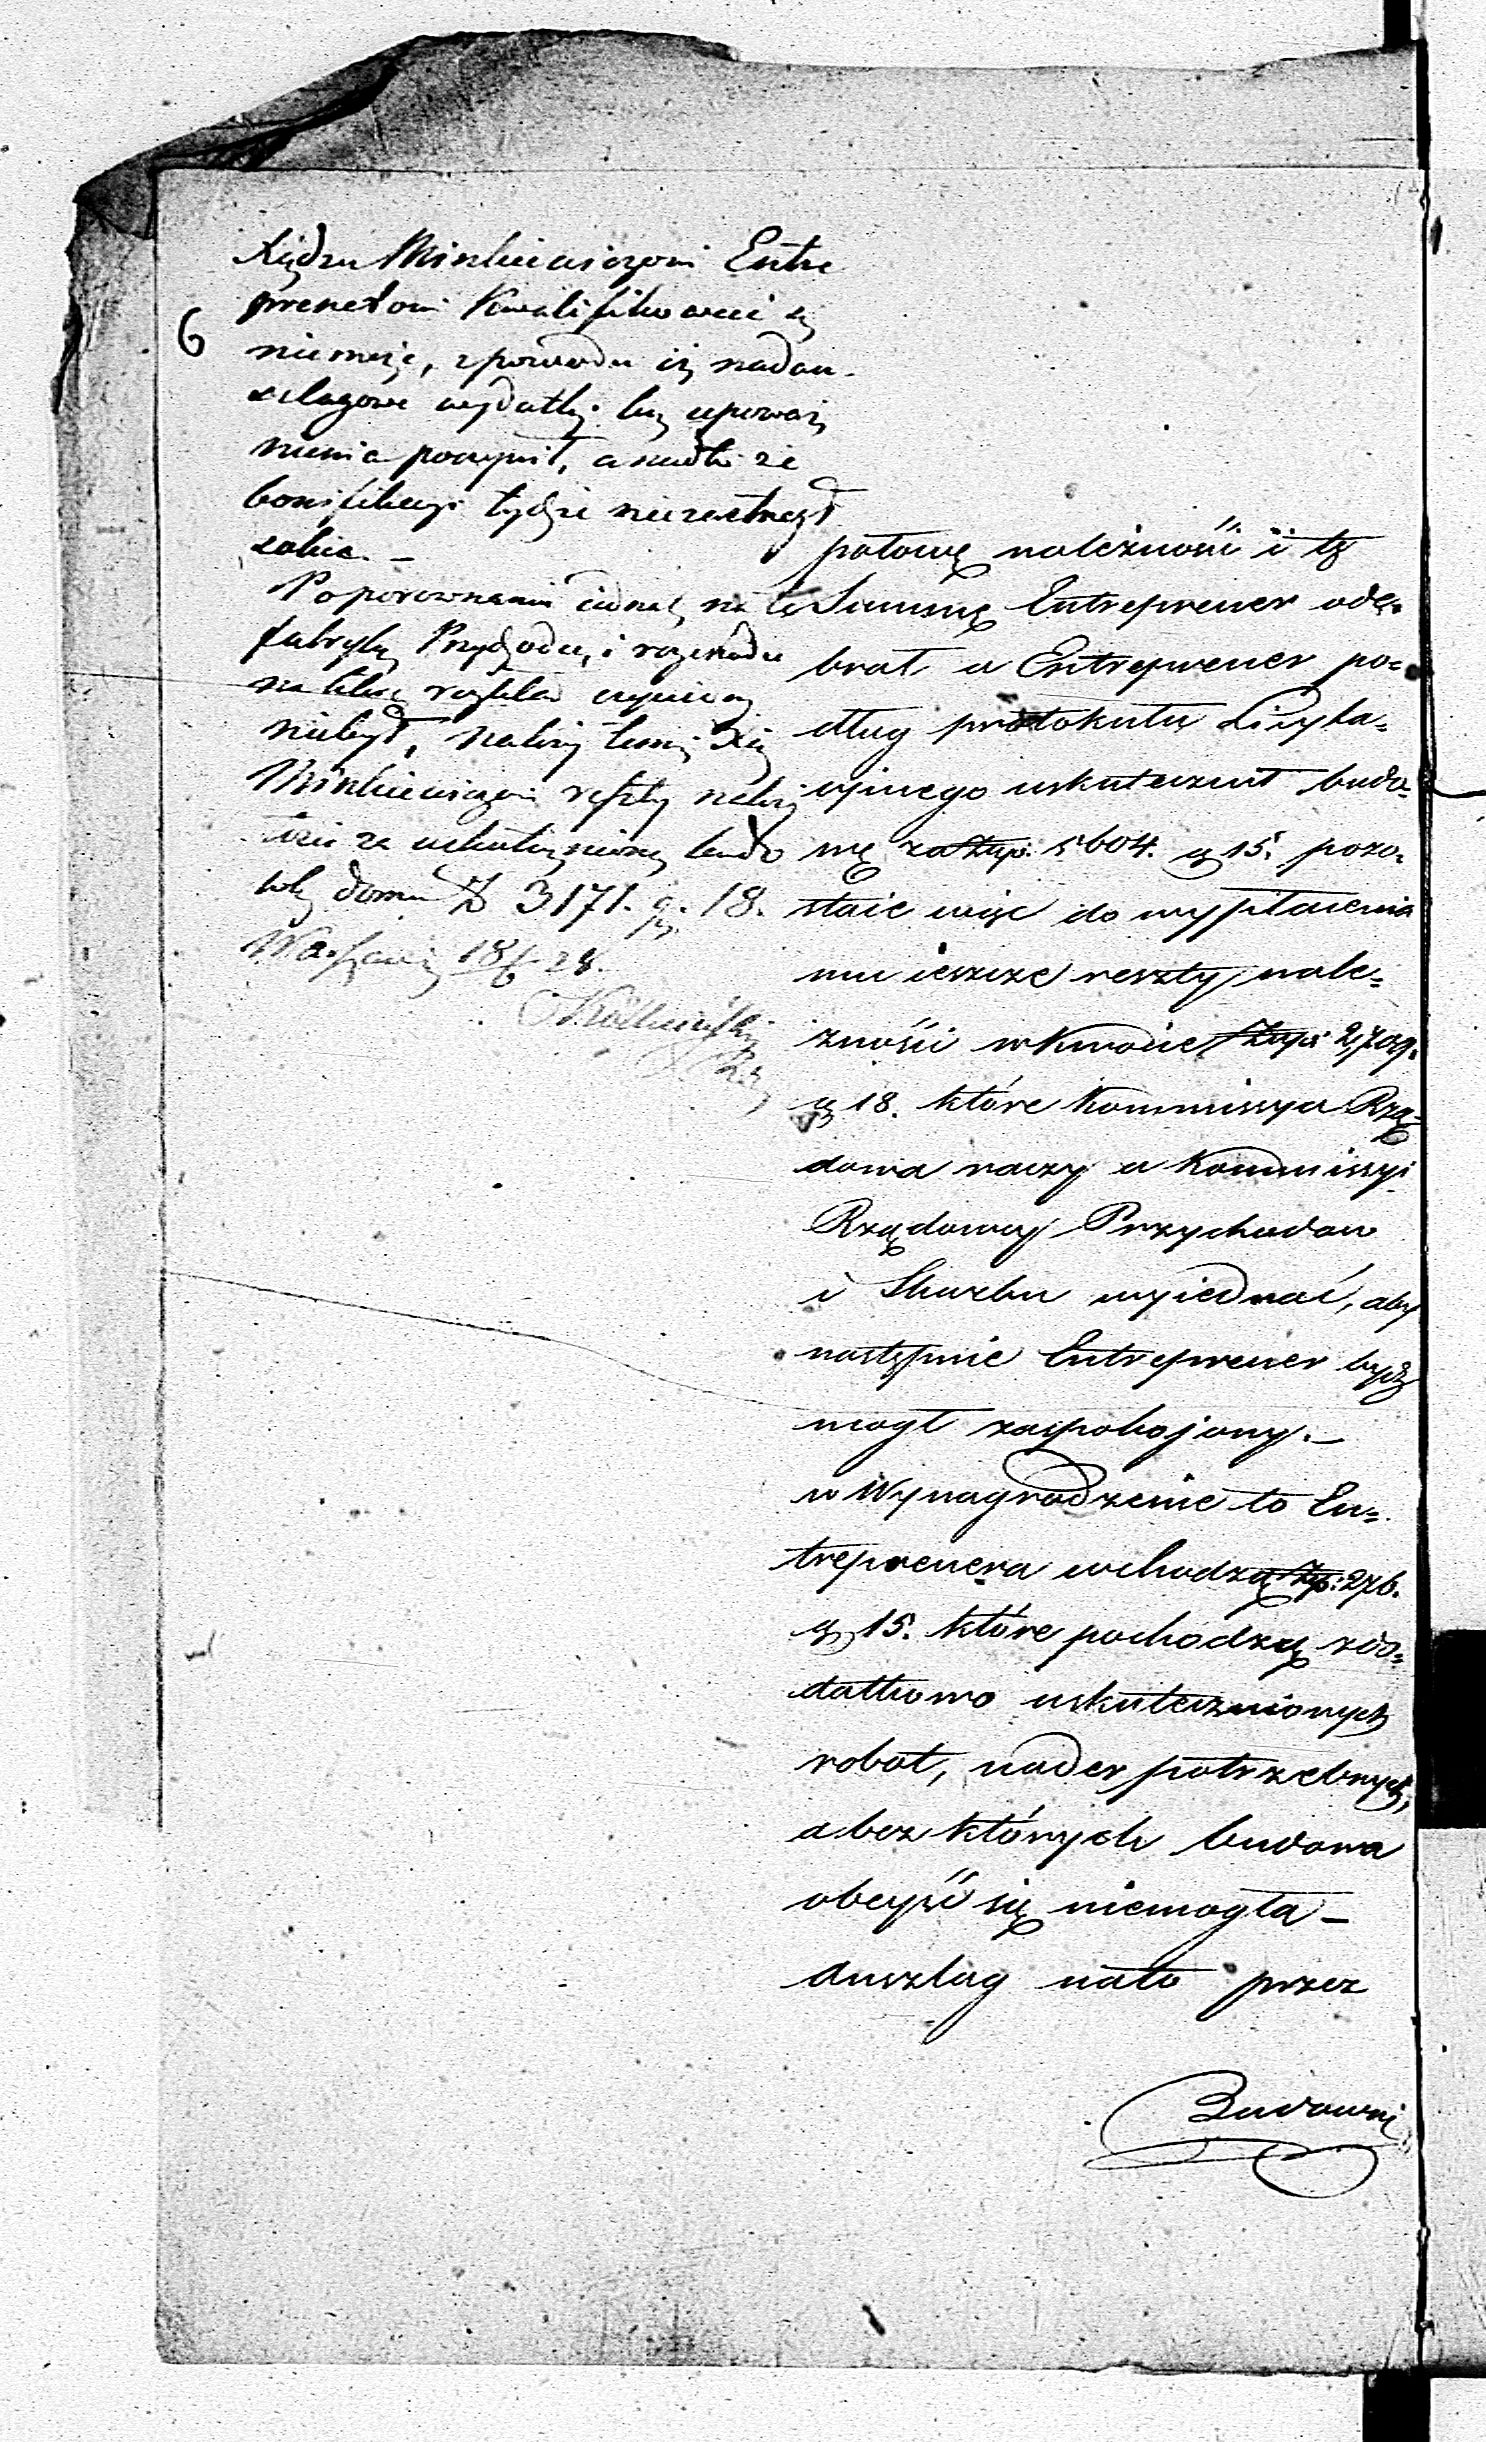 6
Xiędzu Minkiewiczowi Entre
prenerowi kwalifikować się
nie może, z powodu iż nadan
szlagowe wydatki bez upoważ
nienia poczynił, a nadto że
bonifikacyi tychże niezastrzegł
sobie. –
Po porownaniu iednak na tę
fabrykę Przychodu, i rozchodu
na którą rozkład czyniony
niebył, należy temuż Xię
Minkiewiczowi reszty należy
tości za uskutecznioną budo
wlę domu Zł 3171. g. 18.
Warszawa 18 28.
połowę należności i tę
Summę Entreprener ode=
brał a Entreprener po=
dług protokułu Licyta=
cyinego uskutecznił budo=
wę za Złp: 5604. g 15. pozo=
staie więc do wypłacenia
mu ieszcze reszty nale=
żności w kwocie Złp: 2709.
g 18. które Kommissya Rzą=
dowa raczy u Kommissyi
Rządowey Przychodow
i Skarbu wyiednać, aby
następnie Entreprener bydź
mogł zaspokojony. –
w Wynagrodzenie to En=
treprenera wchodzą Złp: 276.
g 15. które pochodzą z do=
datkowo uskutecznionych
robot, nader potrzebnych,
a bez których budowa
obeyść się niemogła –
Anszlag nato przez
Budowni